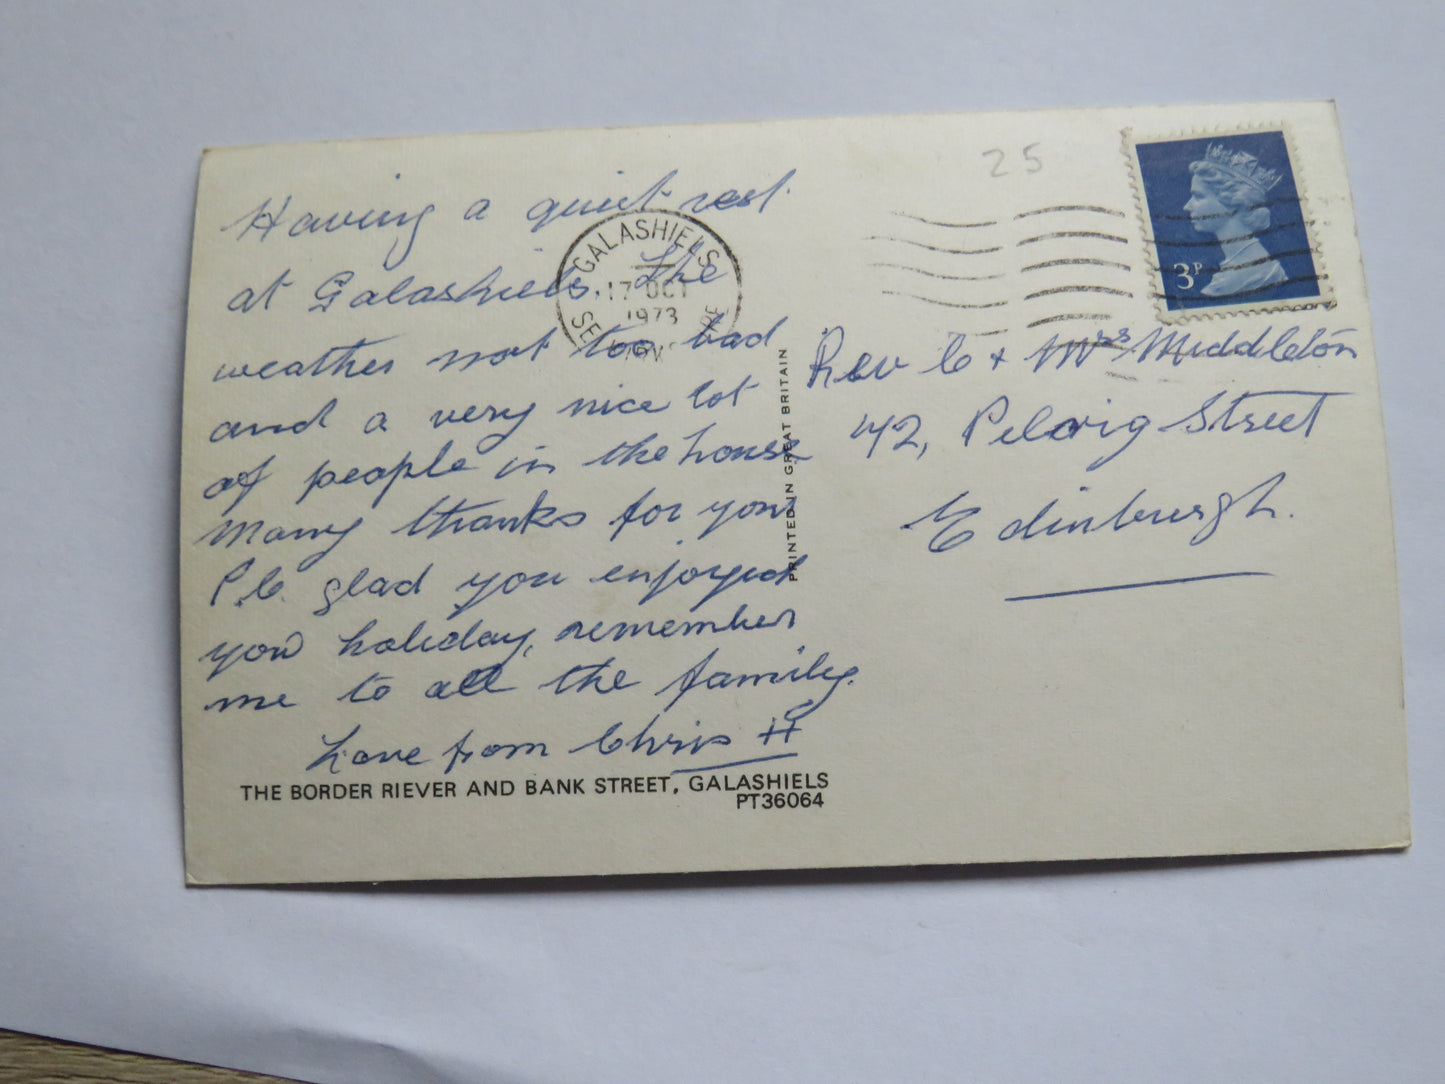 Having a quiet rest.
at Galashiels. The
weather not too bad
and a very nice lot
of people in the house
Many thanks for your
P.C. glad you enjoyed
your holiday, remember
me to all the family.
Love from Chris H
THE BORDER RIEVER AND BANK STREET, GALASHIELS
PT36064
PRINTED IN GREAT BRITAIN
GALASHIELS
17 OCT
1973
SEL
25
3P
Rev C + Mrs Middleton
42, Street
Edinburgh.